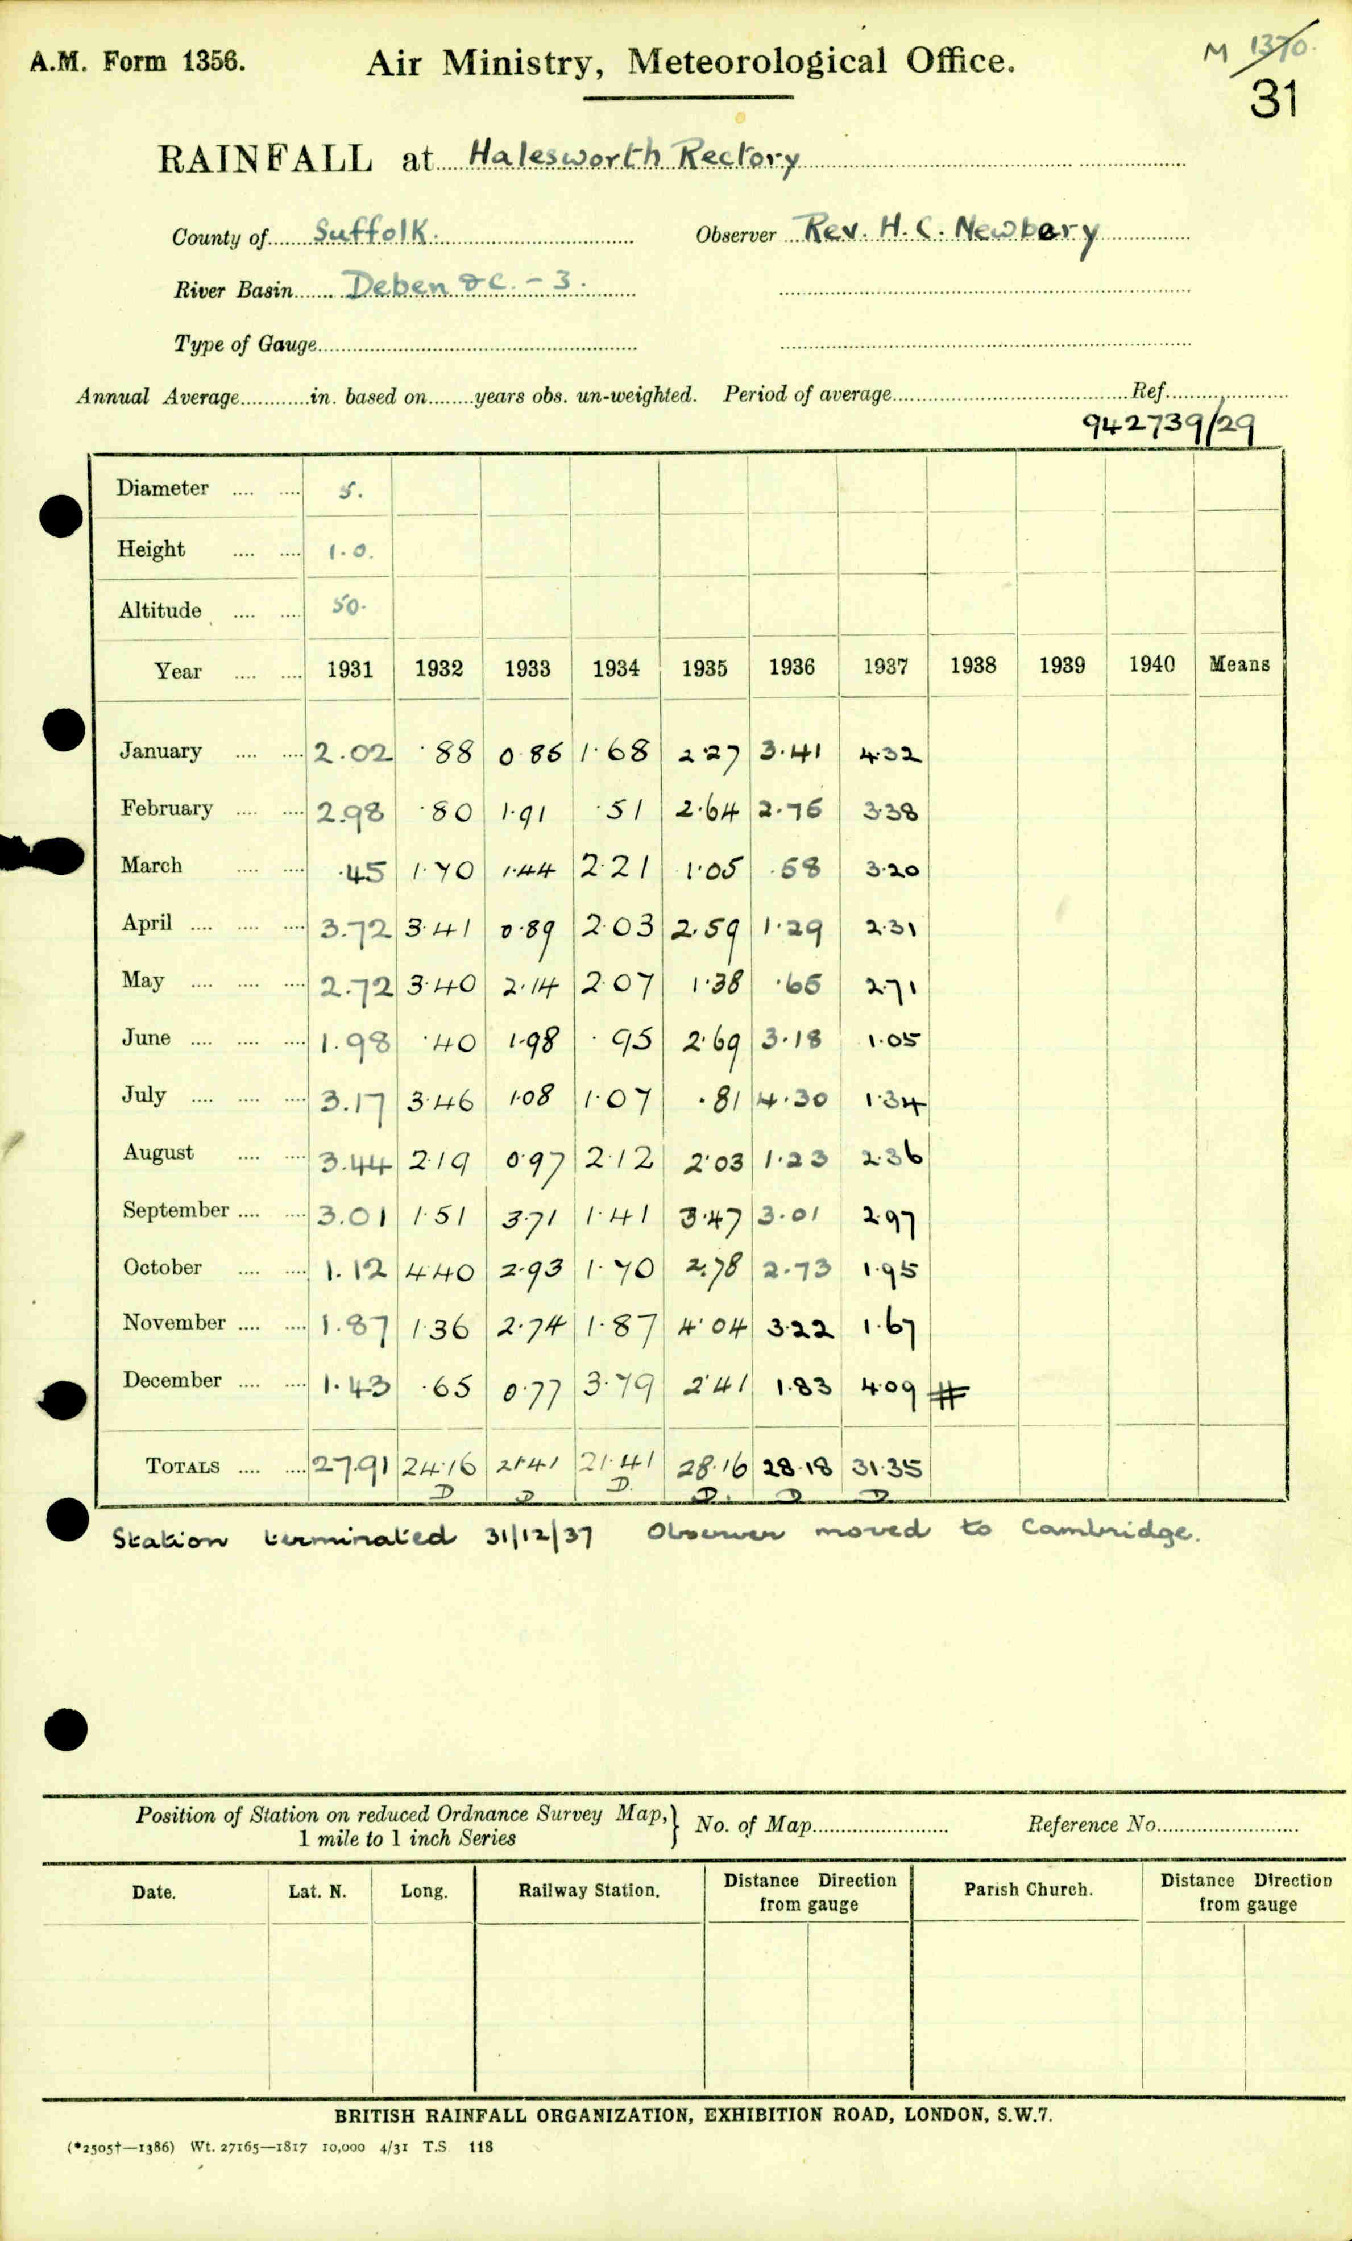 A.M. Form 1356. Air Ministry, Meteorological Office. M 1370.
31
RAINFALL at Halesworth Rectory
County of Suffolk. Observer Rev. H. C. Newbery
River Basin Deben &c. - 3.
Type of Gauge
Annual Average in. based on years obs. un-weighted. Period of average Ref.
942739/29
Diameter 5.
Height 1.0.
Altitude 50.
Year 1931 1932 1933 1934 1935 1936 1937 1938 1939 1940 Means
January 2.02 .88 0.86 1.68 2.27 3.41 4.32
February 2.98 .80 1.91 .51 2.64 2.75 3.38
March .45 1.70 1.44 2.21 1.05 .58 3.20
April 3.72 3.41 0.89 2.03 2.59 1.29 2.31
May 2.72 3.40 2.14 2.07 1.38 .65 2.71
June 1.98 .40 1.98 .95 2.69 3.18 1.05
July 3.17 3.46 1.08 1.07 .81 4.30 1.34
August 3.44 2.19 0.97 2.12 2.03 1.23 2.36
September 3.01 1.51 3.71 1.41 3.47 3.01 2.97
October 1.12 4.40 2.93 1.70 2.78 2.73 1.95
November 1.87 1.36 2.74 1.87 4.04 3.22 1.67
December 1.43 .65 0.77 3.79 2.41 1.83 4.09 #
TOTALS 27.91 24.16 21.41 21.41 28.16 28.18 31.35
D D D. D. D D
Station terminated 31/12/37 Observer moved to Cambridge.
Position of Station on reduced Ordnance Survey Map, } No. of Map Reference No.
1 mile to 1 inch Series
Date. Lat. N. Long. Railway Station. Distance Direction from gauge Parish Church. Distance Direction from gauge
BRITISH RAINFALL ORGANIZATION, EXHIBITION ROAD, LONDON, S.W.7.
(*2505†—1386) Wt. 27165—1817 10,000 4/31 T.S 118